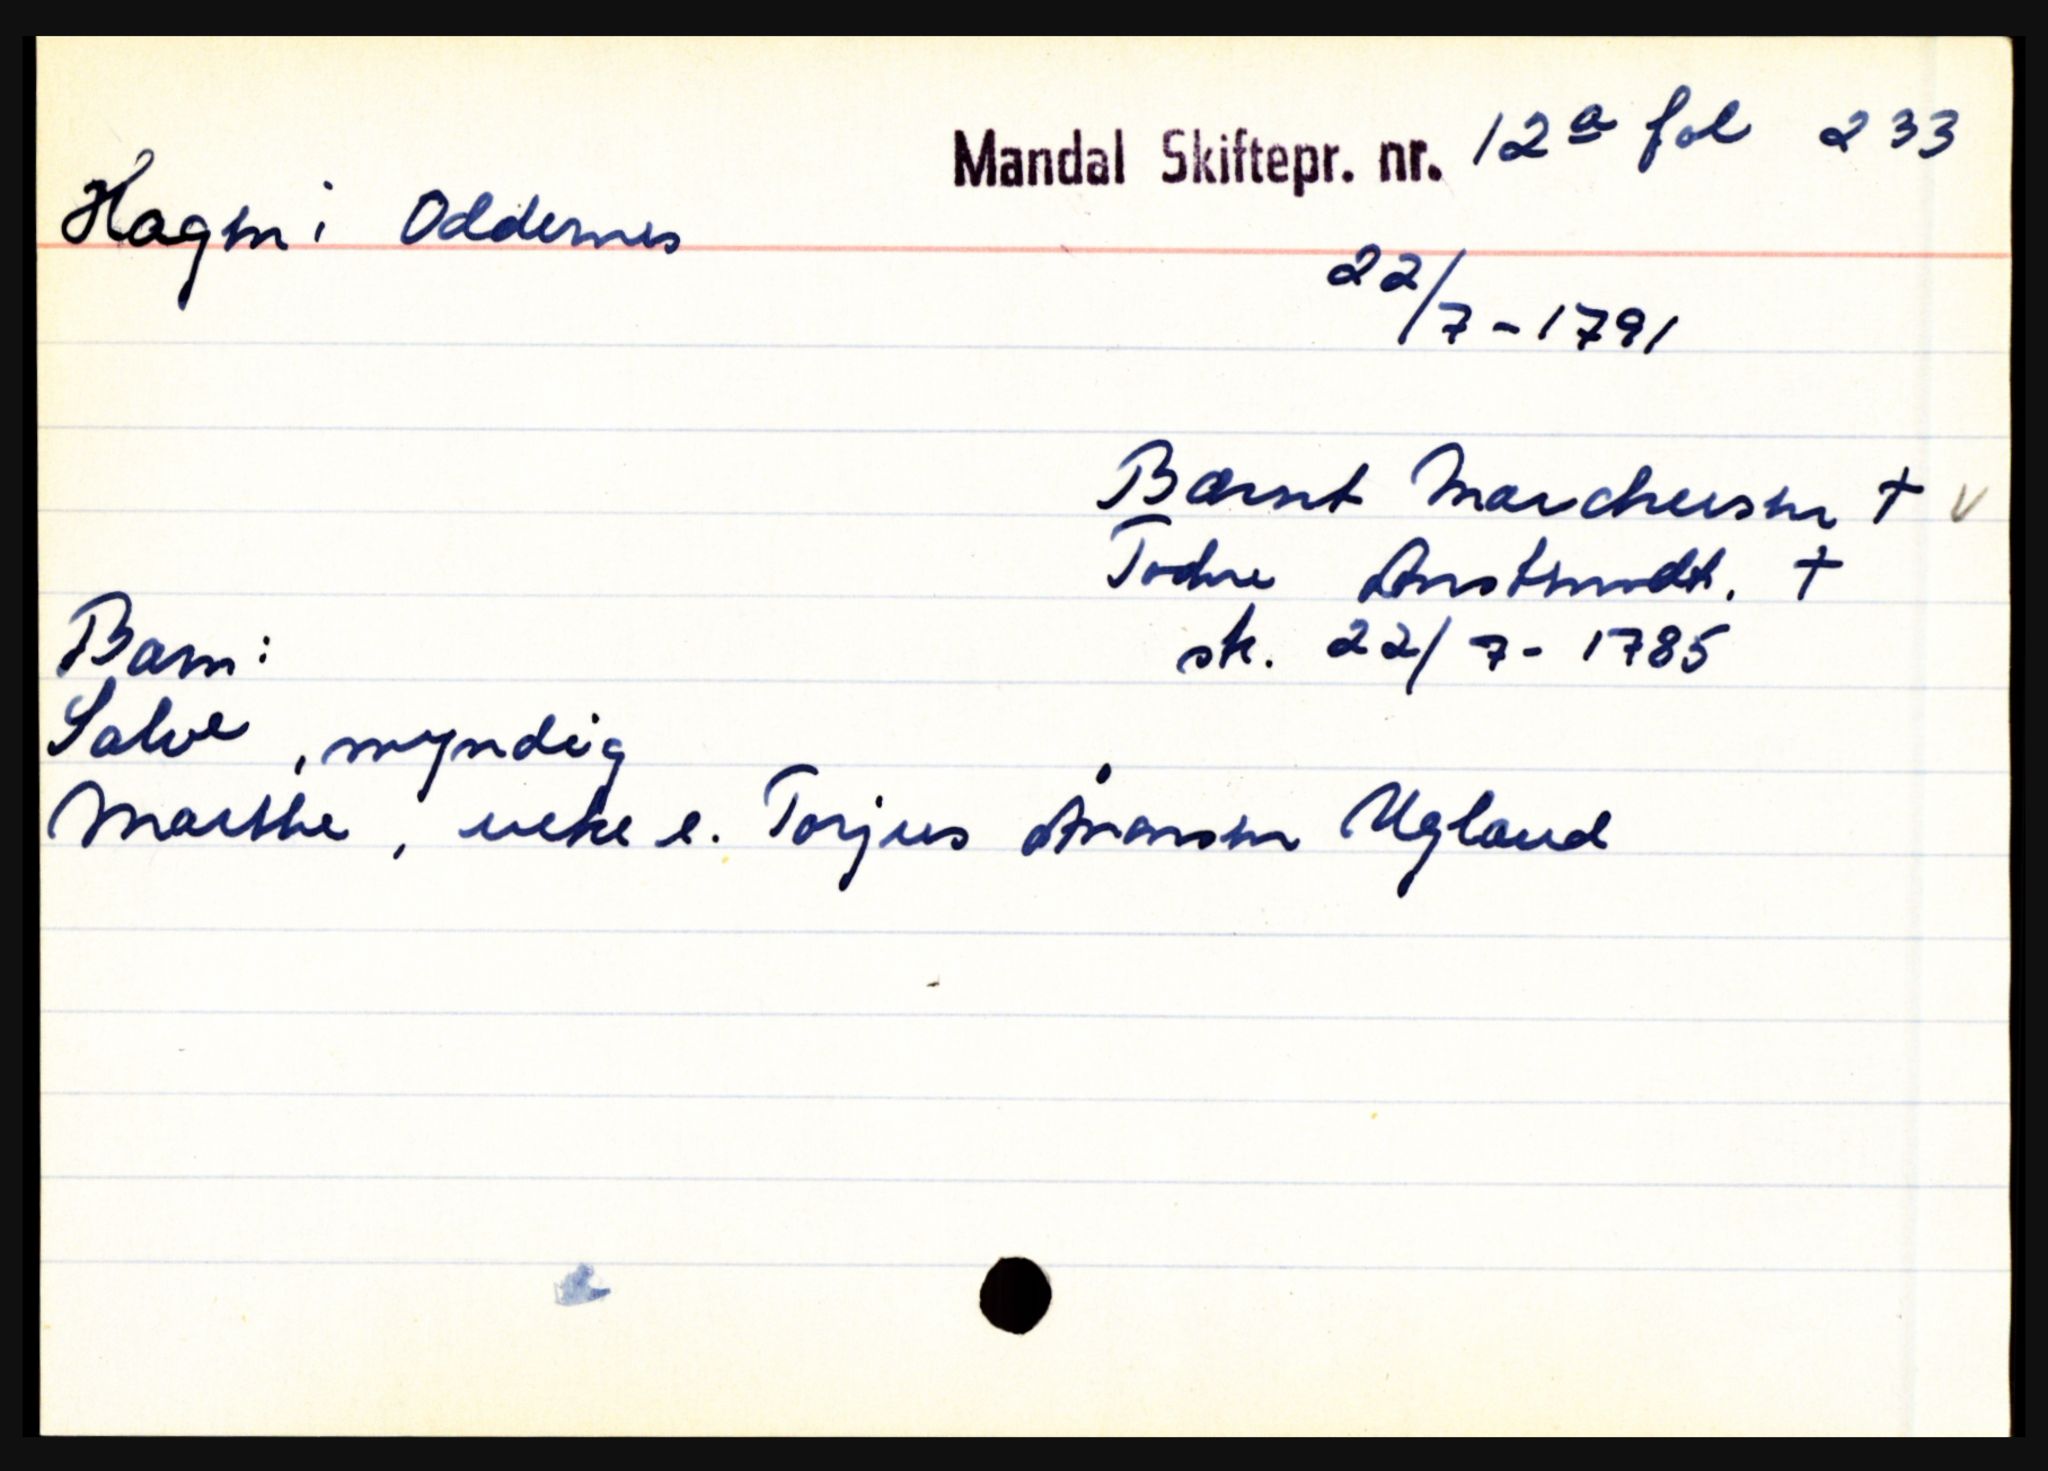 Mandal Skiftepr. nr. 12a fol 233
Hagen i Oddernes
22/7 - 1791
Bernt Marcheusen † v
Todne Anstensdt. †
sk. 22/7 - 1785
Barn:
Salve, myndig
Marthe, enke e. Torjus Ånonsen Ugland